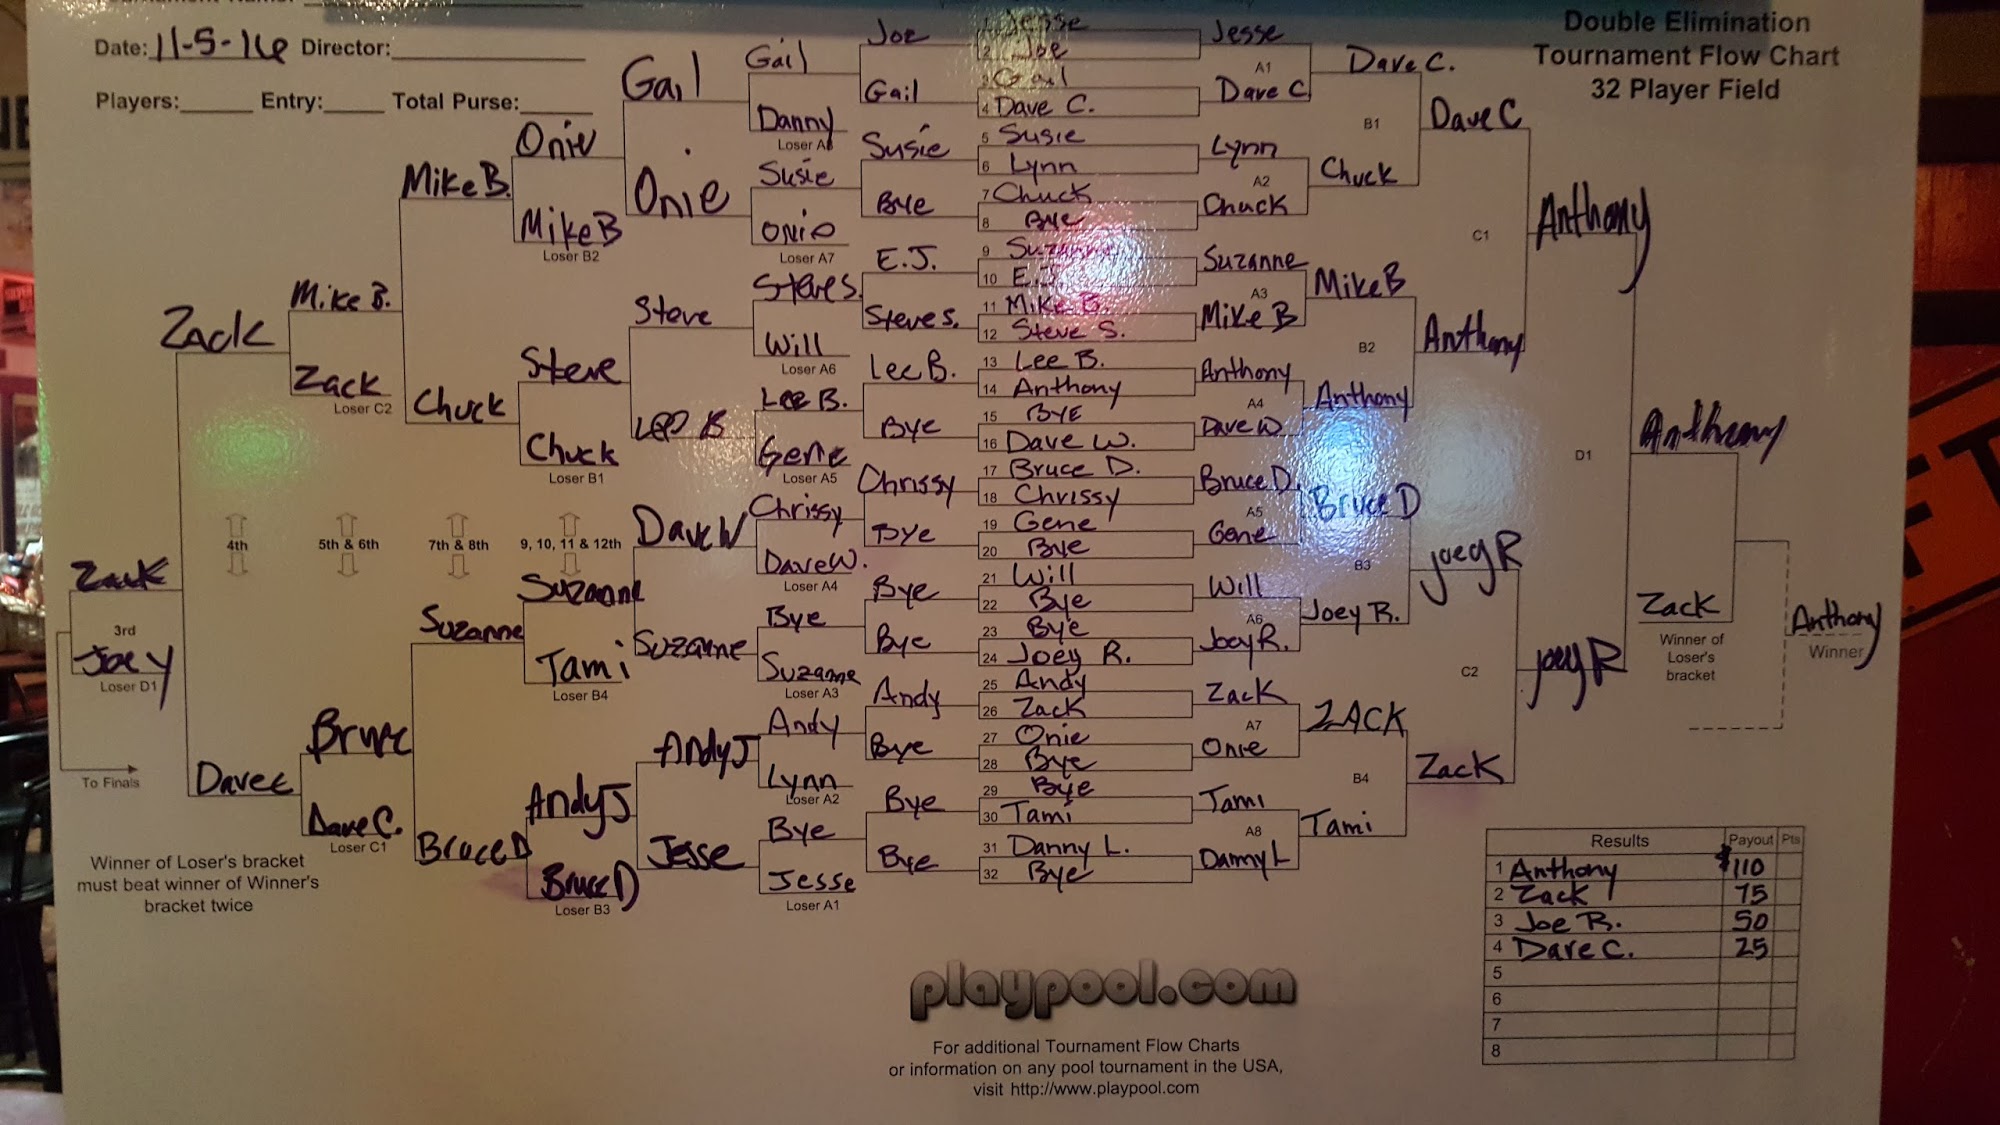 Date: 11-5-16 Director:
Players: Entry: Total Purse:
Double Elimination
Tournament Flow Chart
32 Player Field
1 Jesse
2 Joe
3 Gail
4 Dave C.
5 Susie
6 Lynn
7 Chuck
8 Bye
9 Suzanne
10 E.J.
11 Mike B.
12 Steve S.
13 Lee B.
14 Anthony
15 BYE
16 Dave W.
17 Bruce D.
18 Chrissy
19 Gene
20 Bye
21 Will
22 Bye
23 Bye
24 Joey R.
25 Andy
26 Zack
27 Onie
28 Bye
29 Bye
30 Tami
31 Danny L.
32 Bye
Jesse
A1
Dave C
Lynn
A2
Chuck
Suzanne
A3
Mike B
Anthony
A4
Dave W
Bruce D.
A5
Gene
Will
A6
Joey R.
Zack
A7
Onie
Tami
A8
Danny L
Dave C.
B1
Chuck
Mike B
B2
Anthony
Bruce D
B3
Joey R.
ZACK
B4
Tami
Dave C
C1
Anthony
Joey R
C2
Zack
Anthony
D1
Joey R
Anthony
Zack
Winner of
Loser's
bracket
Anthony
Winner
Joe
Gail
Susie
Bye
E.J.
Steve S.
Lee B.
Bye
Chrissy
Bye
Bye
Bye
Andy
Bye
Bye
Bye
Gail
Danny
Loser A8
Susie
Onie
Loser A7
Steve S.
Will
Loser A6
Lee B.
Gene
Loser A5
Chrissy
Dave W.
Loser A4
Bye
Suzanne
Loser A3
Andy
Lynn
Loser A2
Bye
Jesse
Loser A1
Gail
Onie
Steve
Lee B
Dave W
Suzanne
Andy J
Jesse
Onie
Mike B
Loser B2
Steve
Chuck
Loser B1
9, 10, 11 & 12th
Suzanne
Tami
Loser B4
Andy J
Bruce D
Loser B3
Mike B.
Chuck
7th & 8th
Suzanne
Bruce D
Mike B.
Zack
Loser C2
5th & 6th
Bruce
Dave C.
Loser C1
Zack
4th
Dave C
Zack
3rd
Joey
Loser D1
To Finals
Winner of Loser's bracket
must beat winner of Winner's
bracket twice
Results Payout Pts
1 Anthony $110
2 Zack 75
3 Joe R. 50
4 Dave C. 25
5
6
7
8
playpool.com
For additional Tournament Flow Charts
or information on any pool tournament in the USA,
visit http://www.playpool.com